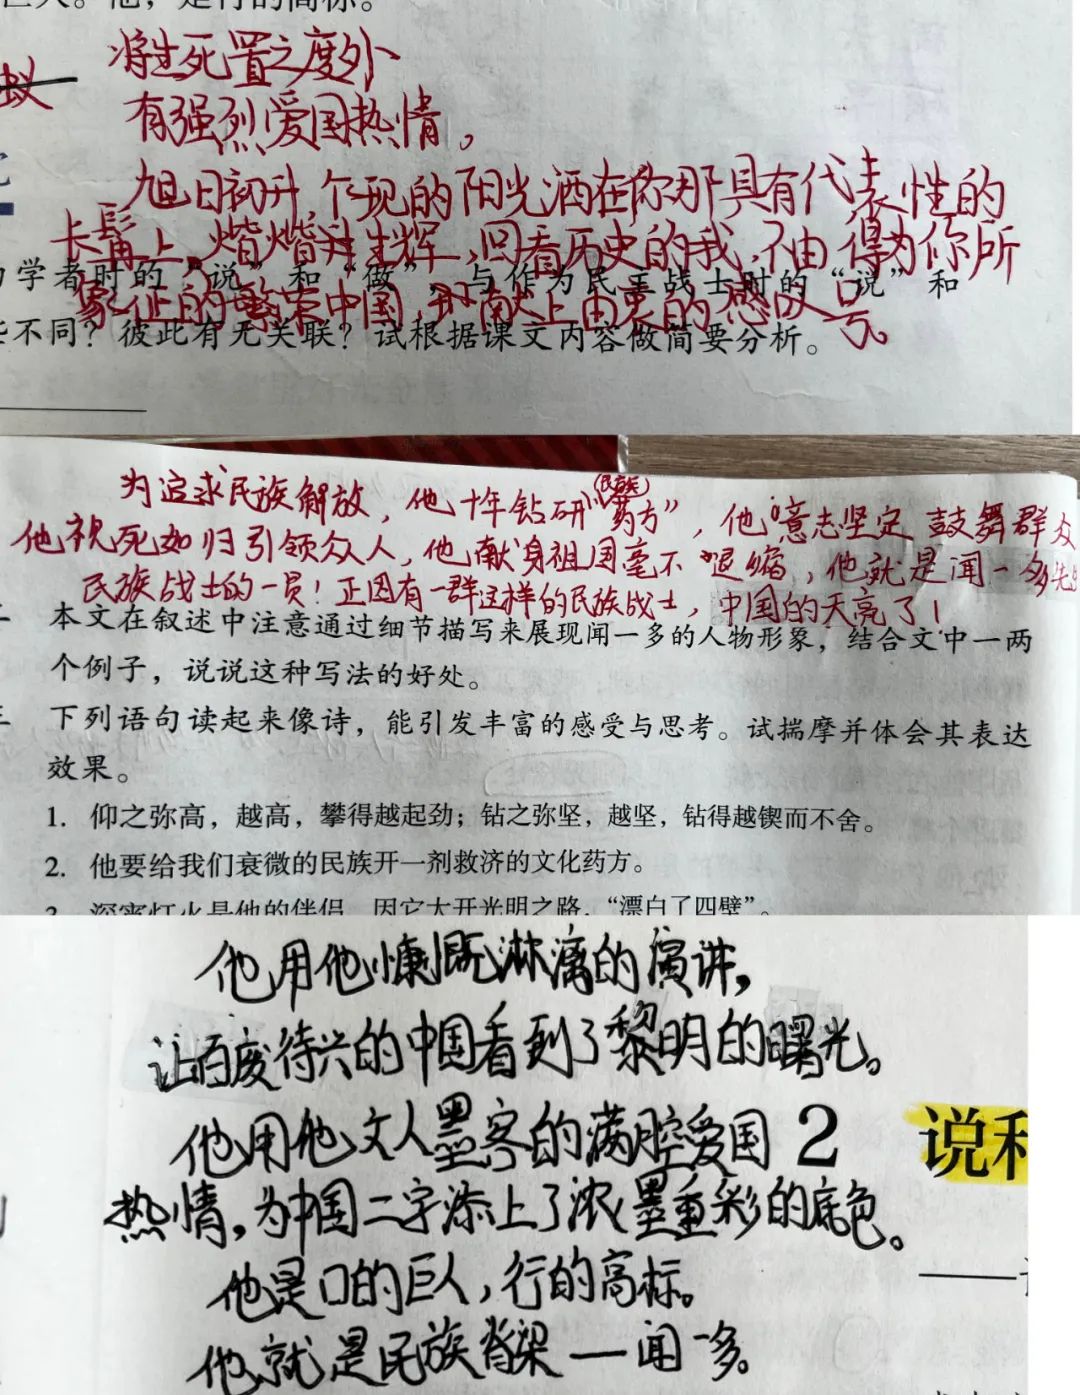 巨人。他，是行的高标。
将生死置之度外
蚁
有强烈爱国热情。
旭日初升 乍现的阳光洒在你那具有代表性的
长髯上，熠熠并生辉，回看历史的我，不由得为你所
学者时的“说”和“做”，与作为民主战士时的“说”和
象征的繁荣中国，献上由衷的感叹号。
些不同？彼此有无关联？试根据课文内容做简要分析。
为追求民族解放，他十年钻研“(民族)药方”，他“意志坚定 鼓舞群众
他视死如归引领众人，他献身祖国毫不退缩，他就是闻一多先生
民族战士的一员！正因有一群这样的民族战士，中国的天亮了！
二 本文在叙述中注意通过细节描写来展现闻一多的人物形象，结合文中一两
个例子，说说这种写法的好处。
三 下列语句读起来像诗，能引发丰富的感受与思考。试揣摩并体会其表达
效果。
1. 仰之弥高，越高，攀得越起劲；钻之弥坚，越坚，钻得越锲而不舍。
2. 他要给我们衰微的民族开一剂救济的文化药方。
3. 深宵灯火是他的伴侣，因它大开光明之路，“漂白了四壁”。
他用他慷慨淋漓的演讲，
让百废待兴的中国看到了黎明的曙光。
他用他文人墨客的满腔爱国
2 说和
热情，为中国二字添上了浓墨重彩的底色。
他是口的巨人，行的高标。
他就是民族脊梁—闻一多。